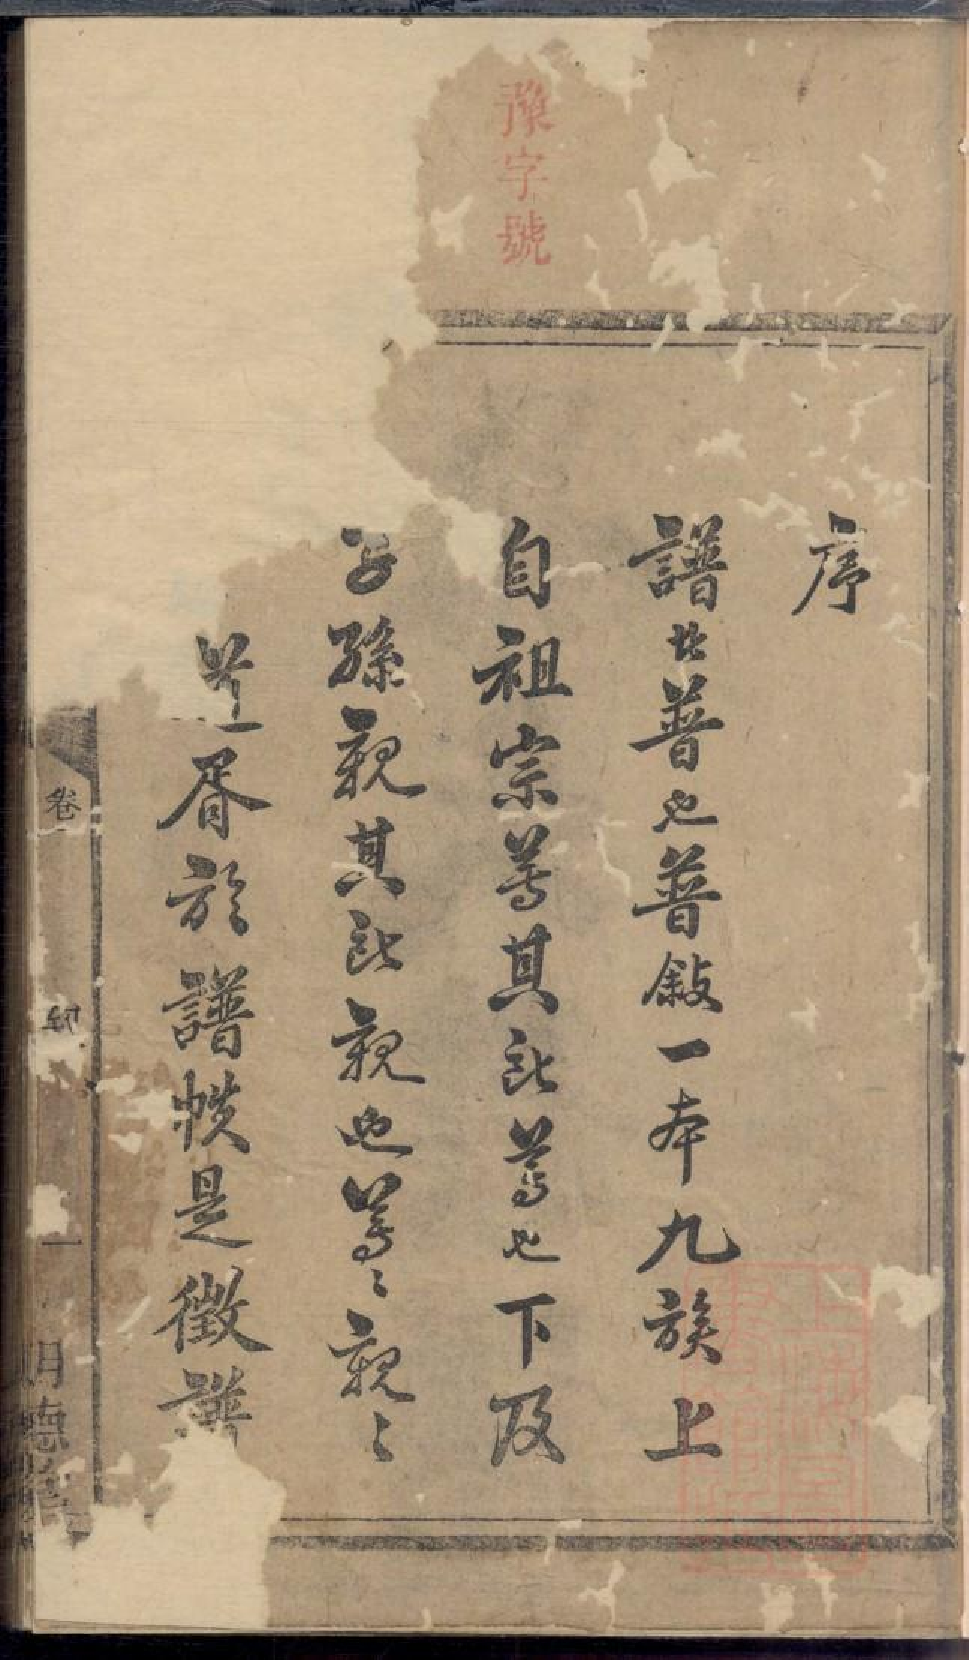 豫字號
序
譜者普也普敘一本九族上
自祖宗尊其所尊也下及
子孫親其所親也尊〻親〻
道胥於譜帙是徵譜
卷
一
明德堂